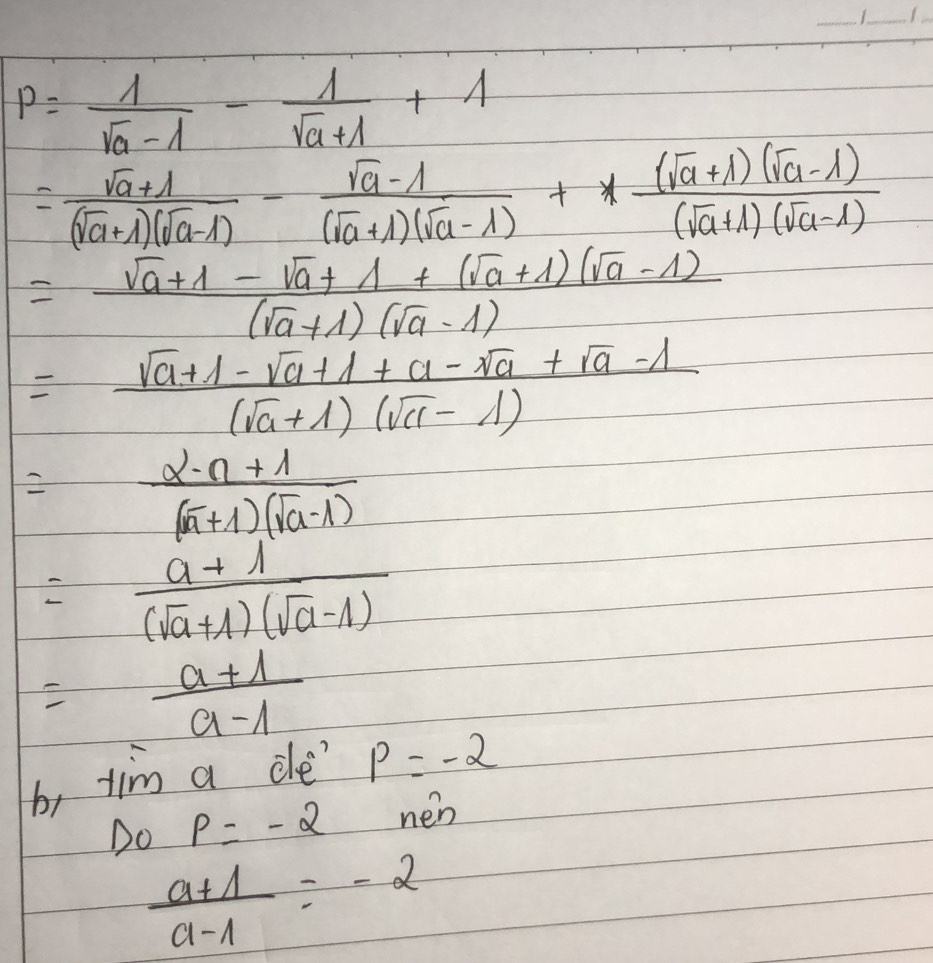 P = 1/(√a - 1) - 1/(√a + 1) + 1
= (√a + 1)/((√a+1)(√a-1)) - (√a - 1)/((√a+1)(√a-1)) + ((√a+1)(√a-1))/((√a+1)(√a-1))
= (√a + 1 - √a + 1 + (√a+1)(√a-1))/((√a+1)(√a-1))
= (√a+1 - √a+1 + a - √a + √a - 1)/((√a+1)(√a-1))
= (2-a+1)/((√a+1)(√a-1))
= (a+1)/((√a+1)(√a-1))
= (a+1)/(a-1)
b, tìm a để P = -2
Do P = -2 nên
(a+1)/(a-1) = -2